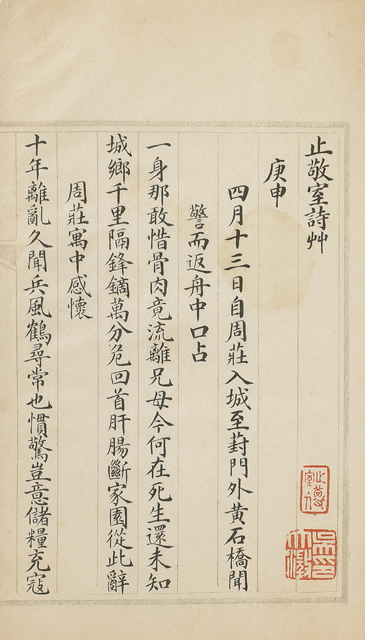 止敬室詩艸
庚申
四月十三日自周莊入城至葑門外黄石橋聞
警而返舟中口占
一身那敢惜骨肉竟流離兄母今何在死生還未知
城鄉千里隔鋒鏑萬分危回首肝腸斷家園從此辭
周莊寓中感懷
十年離亂久聞兵風鶴尋常也慣驚豈意儲糧充寇